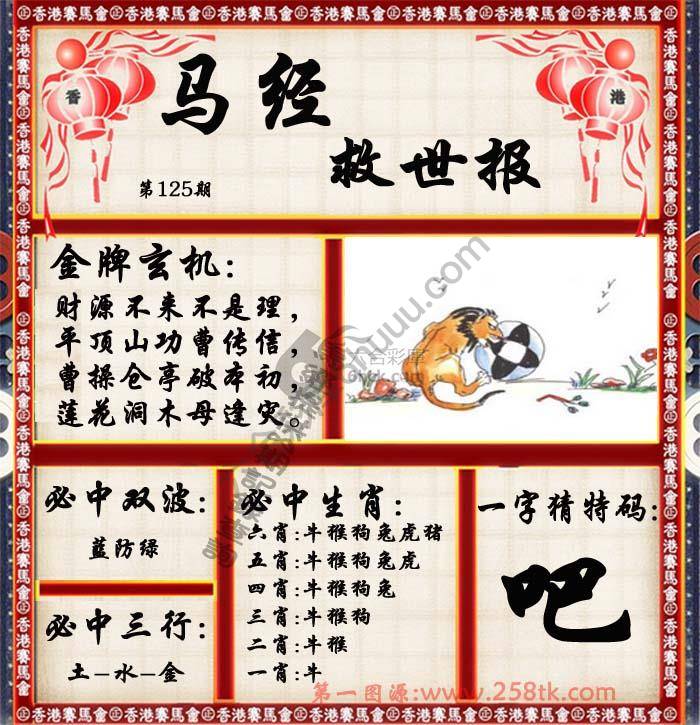 香港賽馬會
香 港
马经
救世报
第125期
金牌玄机:
财源不来不是理,
平顶山功曹传信,
曹操仓亭破本初,
莲花洞木母逢灾。
必中双波:
蓝防绿
必中三行:
土-水-金
必中生肖:
六肖:牛猴狗兔虎猪
五肖:牛猴狗兔虎
四肖:牛猴狗兔
三肖:牛猴狗
二肖:牛猴
一肖:牛
一字猜特码:
吧
第一图源:www.258tk.com